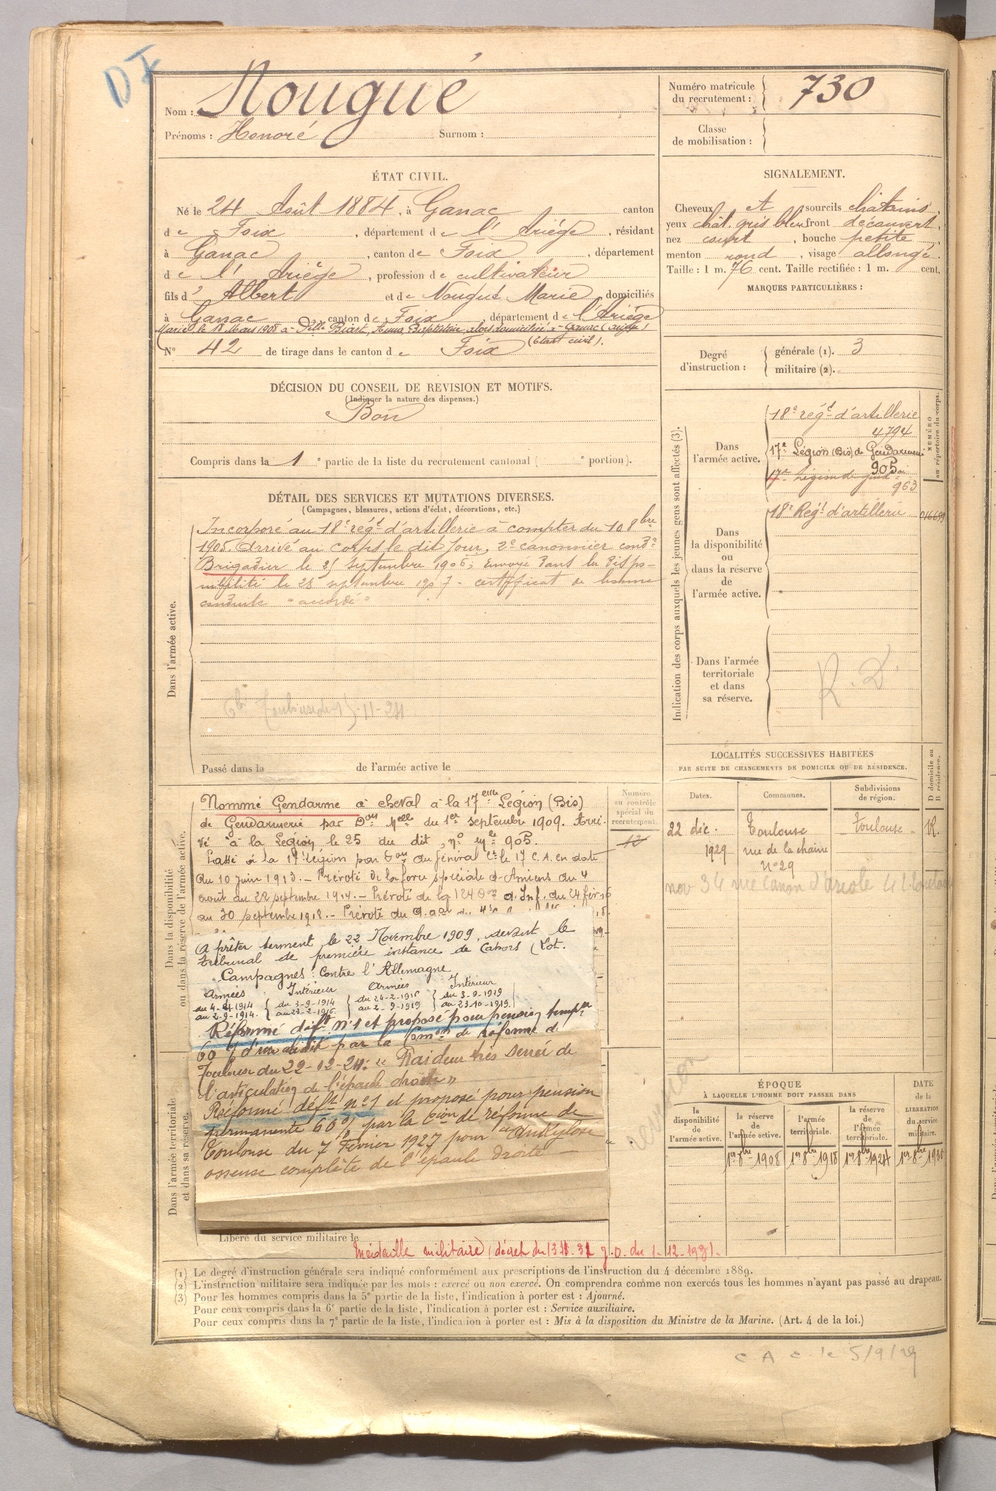 DF
Nom : Nougué
Prénoms : Honoré Surnom :
Numéro matricule du recrutement : 730
Classe de mobilisation :
ÉTAT CIVIL.
Né le 24 Août 1884, à Ganac canton
de Foix, département de l'Ariège, résidant
à Ganac, canton de Foix, département
de l'Ariège, profession de cultivateur
fils d' Albert et de Nougué Marie, domiciliés
à Ganac canton de Foix département de l'Ariège
Marié le 18 Mars 1908 à Dlle domiciliée à Ganac
(Etat civil).
N° 42 de tirage dans le canton de Foix
SIGNALEMENT.
Cheveux et sourcils châtains
yeux chât. gris bleu front découvert,
nez court, bouche petite,
menton rond, visage allongé.
Taille : 1 m. 76 cent. Taille rectifiée : 1 m. cent.
MARQUES PARTICULIÈRES :
Degré d'instruction : générale (1). 3
militaire (2).
DÉCISION DU CONSEIL DE REVISION ET MOTIFS.
(Indiquer la nature des dispenses.)
Bon
Compris dans la 1e partie de la liste du recrutement cantonal ( e portion).
DÉTAIL DES SERVICES ET MUTATIONS DIVERSES.
(Campagnes, blessures, actions d'éclat, décorations, etc.)
Dans l'armée active.
Incorporé au 18e régt d'artillerie à compter du 10 8bre
1905. Arrivé au corps le dit jour, 2e canonnier condr
Brigadier le 25 septembre 1906, Envoyé dans la dispo-
nibilité le 28 septembre 1907. certificat de bonne
conduite "accordé"
Passé dans la de l'armée active le
Indication des corps auxquels les jeunes gens sont affectés (3).
NUMÉRO au répertoire du corps.
Dans l'armée active.
18e régt d'artillerie
4794
17e Légion (Bis) de Gendarmerie
905
17e Légion de
963
Dans la disponibilité ou dans la réserve de l'armée active.
18e Régt d'artillerie
Dans l'armée territoriale et dans sa réserve.
R. D.
LOCALITÉS SUCCESSIVES HABITÉES
PAR SUITE DE CHANGEMENTS DE DOMICILE OU DE RÉSIDENCE.
Dates. Communes. Subdivisions de région. D domicile ou R résidence.
22 déc. 1929 Toulouse rue de la chaine n° 29 Toulouse R.
nov 34 rue
Dans la disponibilité ou dans la réserve de l'armée active.
Numéro au contrôle spécial du recrutement.
Nommé Gendarme à cheval à la 17eme Légion (Bis)
de Gendarmerie par Don Mlle du 1er septembre 1909. Arri-
vé à la Légion le 25 du dit, n° mle 905.
Passé à la 17e Légion par don du Général Ct le 17 C.A. en date
du 10 juin 1913. — Prévôté de la force spéciale d'Amiens du 4
août du 22 septembre 1914. — Prévôté de la 124e Don d'Inf. du 24 fév 1916
au 30 septembre 1918. — Prévôté du
A prêter serment le 22 Novembre 1909, devant le
tribunal de première instance de Cahors (Lot.
Campagnes : Contre l'Allemagne
Armées Intérieur Armées Intérieur
du 4-8-1914 du 3-9-1914 du 24-2-1916 du 3-9-1919
au 2-9-1914. au 23-2-1916. au 2-9-1919 au 23-10-1919.
Réformé déft n° 1 et proposé pour pension tempre
60 % d'invalidité par la Comon de Réforme de
Toulouse du 22-12-24. "Raideur très serrée de
l'articulation de l'épaule droite"
Réformé déft n° 1 et proposé pour pension
permanente 60 % par la Cion de réforme de
Toulouse du 7 Février 1927 pour "Ankylose
osseuse complète de l'épaule droite"
Dans l'armée territoriale et dans sa réserve.
ÉPOQUE
À LAQUELLE L'HOMME DOIT PASSER DANS
DATE de la LIBÉRATION du service militaire.
la disponibilité de l'armée active. la réserve de l'armée active. l'armée territoriale. la réserve de l'armée territoriale.
1er 8bre 1908 1er 8bre 1918 1er 8bre 1924 1er 8bre 1930
Libéré du service militaire le
(1) Le degré d'instruction générale sera indiqué conformément aux prescriptions de l'instruction du 4 décembre 1889.
(2) L'instruction militaire sera indiquée par les mots : exercé ou non exercé. On comprendra comme non exercés tous les hommes n'ayant pas passé au drapeau.
(3) Pour les hommes compris dans la 5e partie de la liste, l'indication à porter est : Ajourné.
Pour ceux compris dans la 6e partie de la liste, l'indication à porter est : Service auxiliaire.
Pour ceux compris dans la 7e partie de la liste, l'indication à porter est : Mis à la disposition du Ministre de la Marine. (Art. 4 de la loi.)